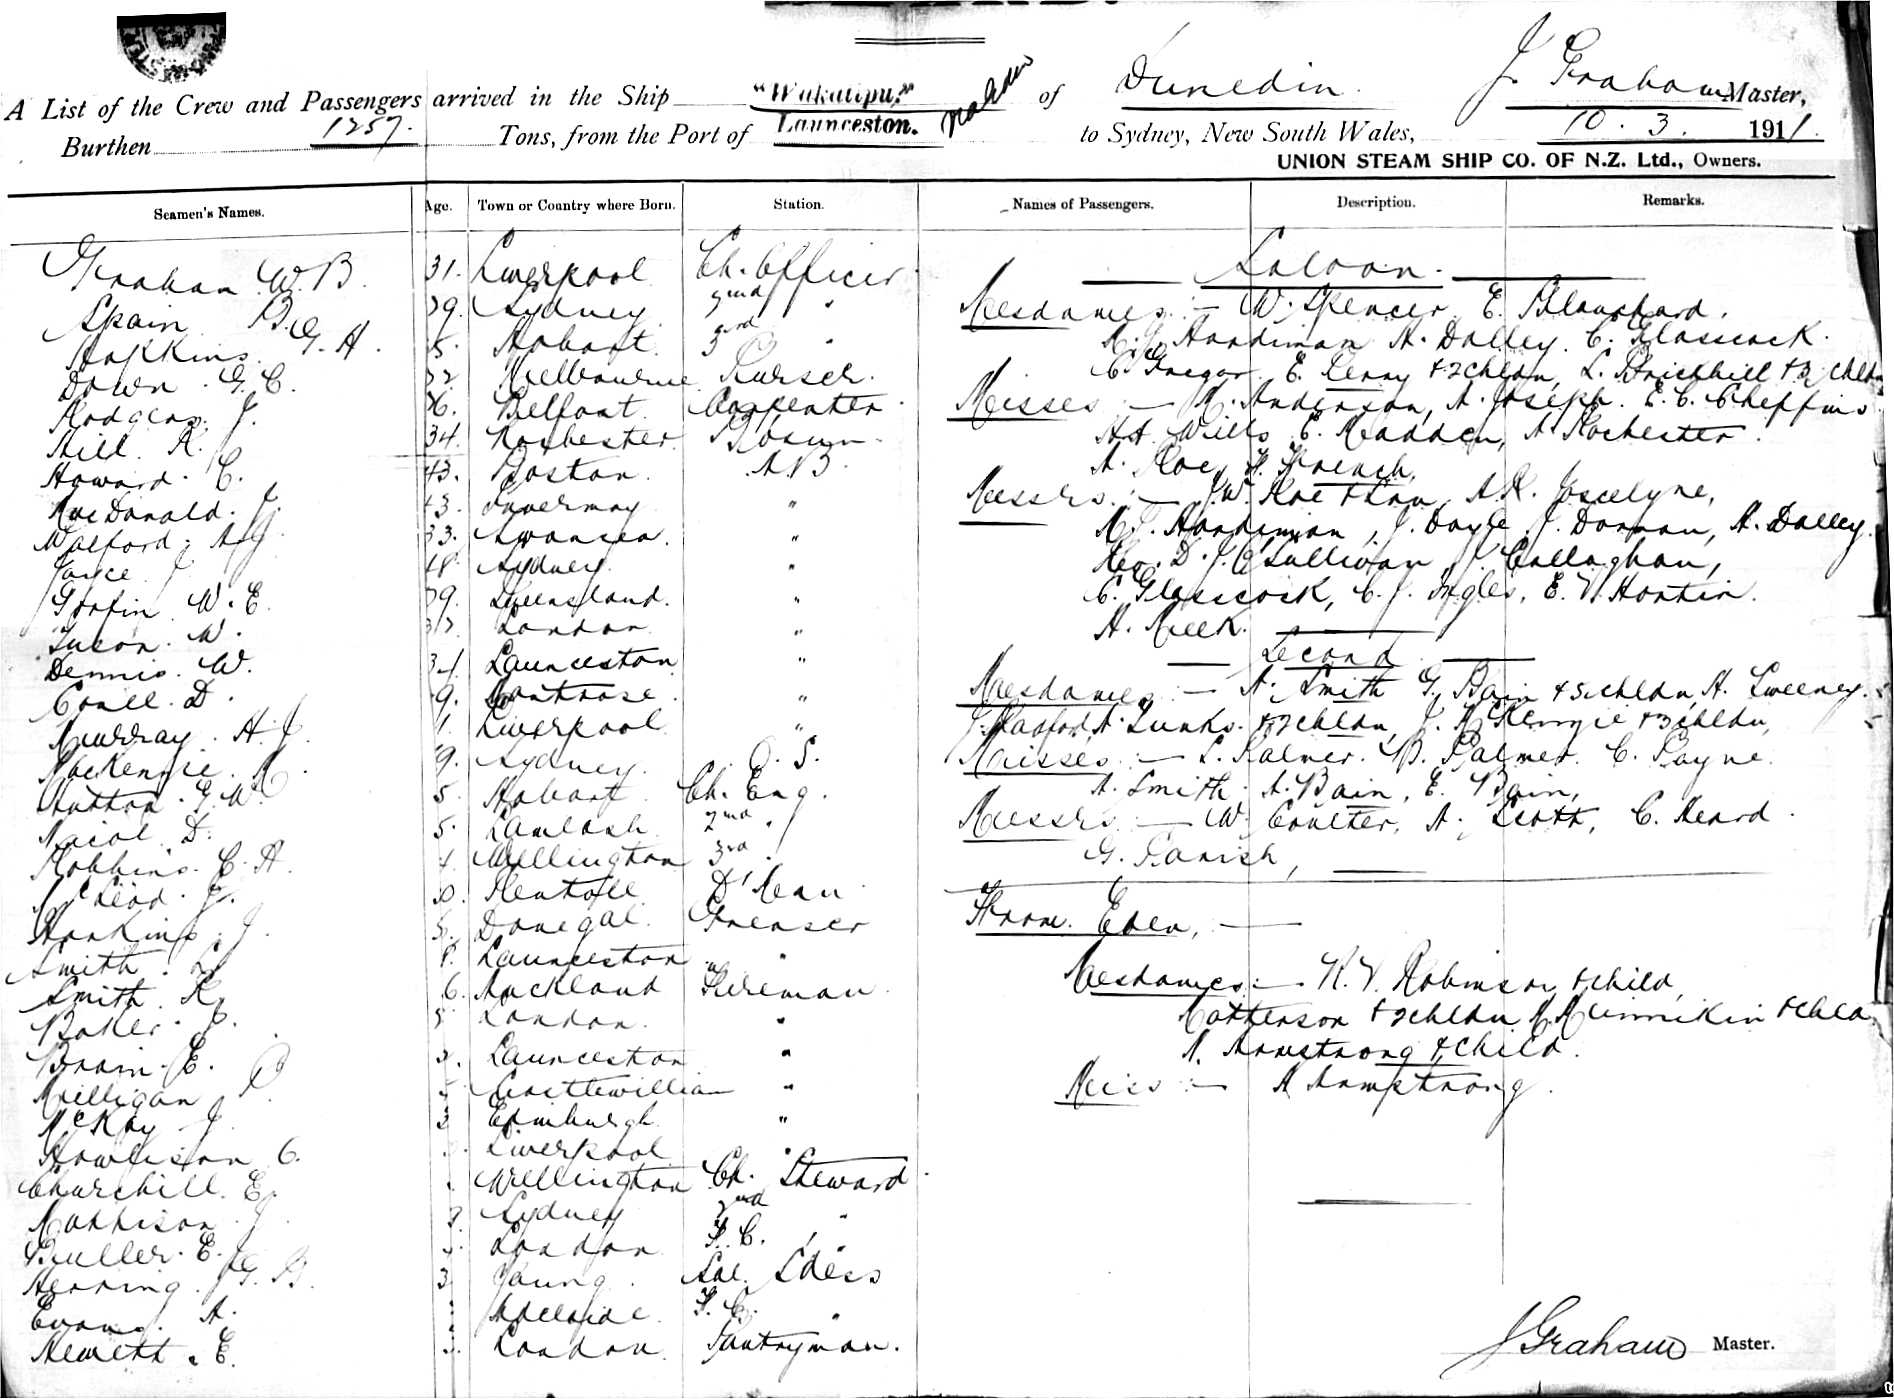 A List of the Crew and Passengers arrived in the Ship "Wakatipu," of Dunedin J. Graham Master,
Burthen 1257. Tons, from the Port of Launceston. to Sydney, New South Wales, 10. 3. 1911.
UNION STEAM SHIP CO. OF N.Z. Ltd., Owners.
Seamen's Names. Age. Town or Country where Born. Station. Names of Passengers. Description. Remarks.
Graham W. B. 31. Liverpool Ch. Officer.
Spain B. 29. Sydney 2nd "
Hopkins. G. H. 5. Hobart. 3rd "
Down. G. C. 22. Melbourne Purser.
Rodgers. J. 36. Belfast. Carpenter.
Hill. R. 34. Rochester Bosun.
Howard. C. 43. Boston. A B.
MacDonald. J. 43. Invermay "
Walford. A G. 33. Swansea. "
Joyce J 48. Sydney. "
Godfin W. E. 29. Queensland. "
W. London "
Dennis. W. 34 Launceston "
Conell. D. 9. Montrose. "
Murray. H. J. 1. Liverpool "
MacKenzie. R. 9. Sydney. O. S.
Hutton. G. W. 5. Hobart Ch. Eng.
Nicol. D. 5. Lamlash 2nd "
Robbins. C. A. 4. Wellington 3rd "
McLeod. J. D'Man
Hankins. J. 5. Donegal. Greaser
Smith. 8. Launceston "
Smith. R. 6. Auckland Fireman.
Baker. C. London. "
Brain. E. Launceston "
Milligan P. 5 Castlewillian "
McKay J. 3 Edinburgh "
Howieson C. Liverpool "
Churchill. E. Wellington Ch. Steward
Mathison. J. Sydney 2nd "
Buller. E. London F. C. "
Herring. G. B. 3 Young. Sal. S'dess
Evans. A. Adelaide. F. C. "
Hewett. E. London. Pantryman.
Saloon.
Mesdames:— W. Spencer, E. Blanchard.
M. J. Hardiman. A. Dalley. C. Glasscock.
C Gregor. E. Kenny & 2 chldn, L. Brickhill & 3 chldn
Misses — M. Anderson, A. Joseph. E. C. Cheffins.
A A. Wills, E. Madden, A Rochester.
A. Roe, F. French.
Messrs:— J. W. Roe & Son, A. R. Joscelyne,
M. J. Hardiman, J. Doyle, J. Dornan, A. Dalley.
Rev. D. J. O'Sullivan, J. Callaghan,
C. Glasscock, C. J. Ingles, E. V. Hontin.
A. Meek.
Second
Mesdames:— A. Smith G. Bain & 5 chldn, A. Sweeney.
J. Radford, A. Lunks. & 2 chldn, J. McKenzie & 3 chldn,
Misses:— L. Palmer. B. Palmer. C. Payne.
A. Smith. A. Bain, E. Bain,
Messrs:— W. Coulter, A. Scott, C. Heard.
G. Parish,
From. Eden,—
Mesdames:— R. V. Robinson & child,
Matterson & 2 chldn M. Minnikin & chld
A. Armstrong & child.
Miss:— A Armstrong.
J Graham Master.